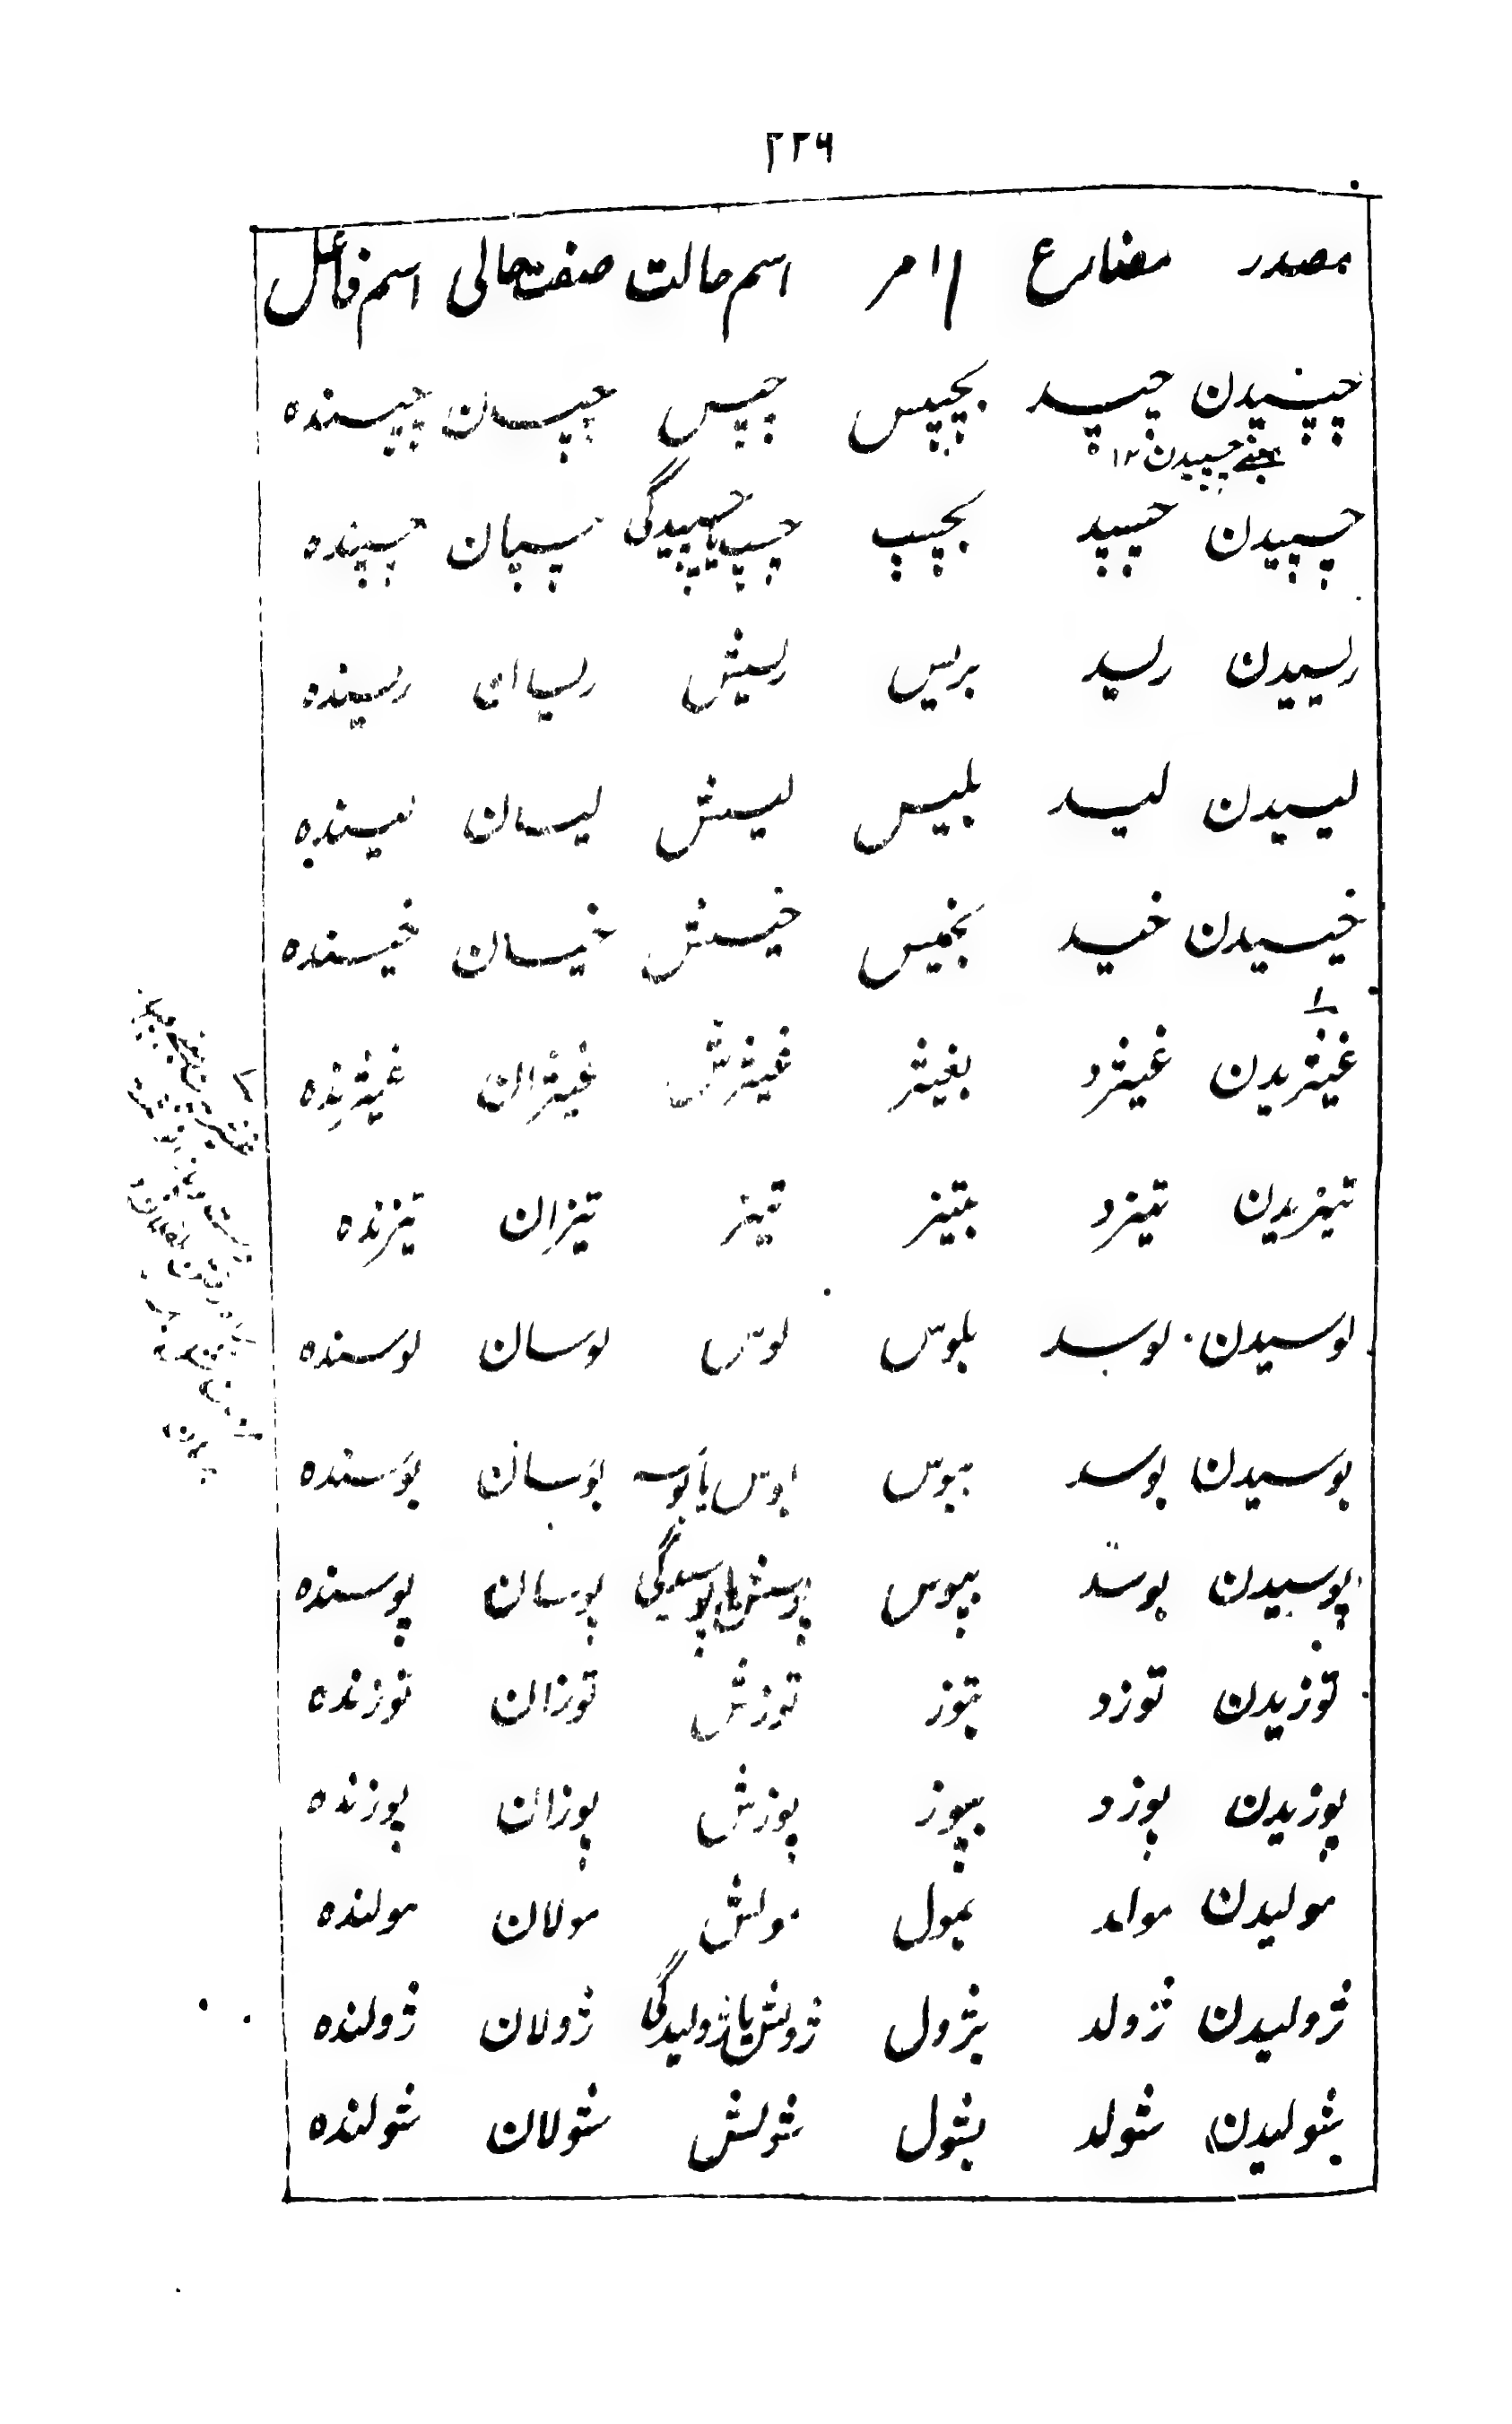 ۲۲۶
مصدر مضارع امر اسم حالت صفت حالی اسم فاعل
چپسیدن چپسد بچپس چپس چپسان چپسنده
بمعنے چسپیدن ۱۲
چسپیدن چسپد بچسپ چسپ یا چسپیدگی چسپان چسپنده
ریسیدن ریسد بریس ریسش ریسان ریسنده
لیسیدن لیسد بلیس لیسش لیسان لیسنده
خیسیدن خیسد بخیس خیسش خیسان خیسنده
غیژیدن غیژد بغیژ غیژش غیژان غیژنده
تیزیدن تیزد بتیز تیز تیزان تیزنده
لوسیدن لوسد بلوس لوس لوسان لوسنده
بوسیدن بوسد ببوس بوس یا بوسہ بوسان بوسنده
پوسیدن پوسد بپوس پوسش یا پوسیدگی پوسان پوسنده
توزیدن توزد بتوز توزش توزان توزنده
پوزیدن پوزد بپوز پوزش پوزان پوزنده
مولیدن مولد بمول مولش مولان مولنده
ژولیدن ژولد بژول ژولش یا ژولیدگی ژولان ژولنده
بشولیدن شولد بشول شولش شولان شولنده